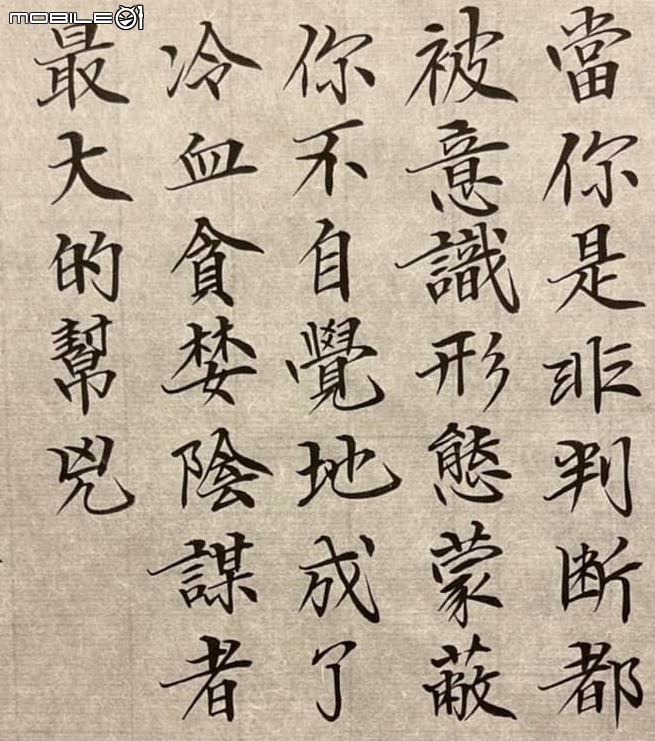 MOBILE01
當你是非判断都
被意識形態蒙蔽
你不自覺地成了
冷血貪婪陰謀者
最大的幫兇